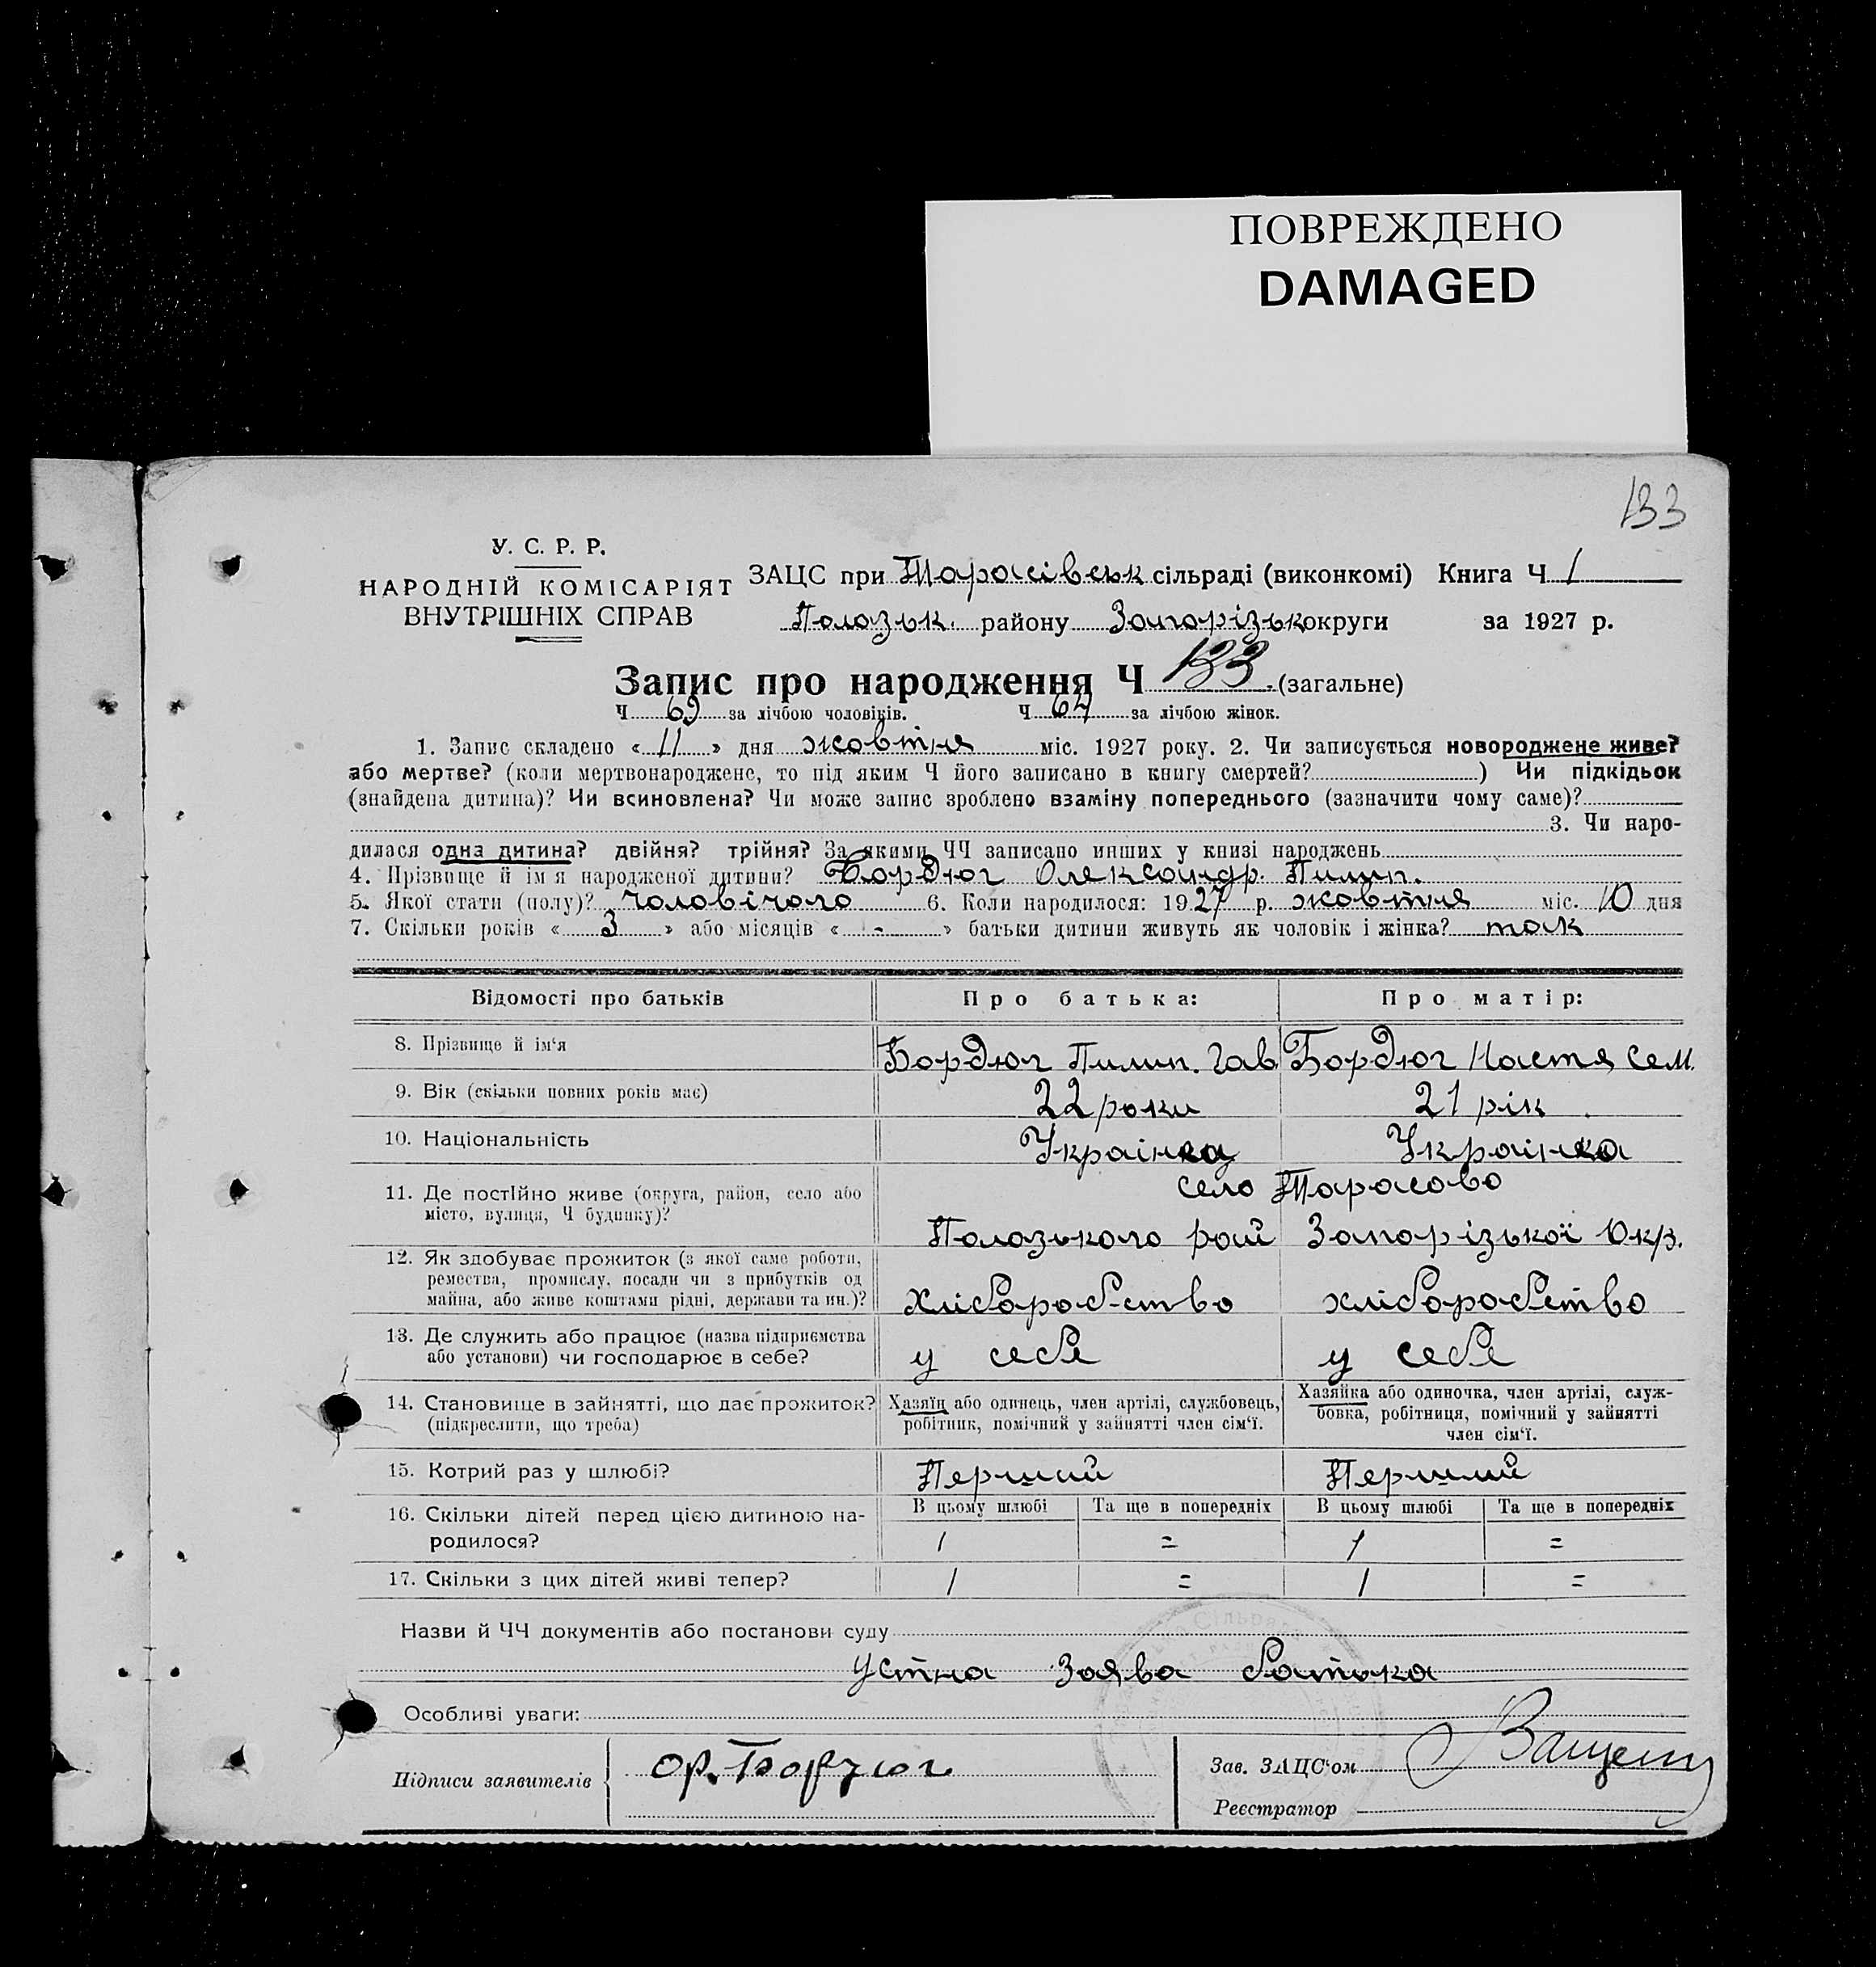 ПОВРЕЖДЕНО
DAMAGED
133
У. С. Р. Р.
НАРОДНІЙ КОМІСАРІЯТ
ВНУТРІШНІХ СПРАВ
ЗАЦС при Тарасівськ сільраді (виконкомі) Книга Ч 1
Полазьк. району Запорізьк округи за 1927 р.
Запис про народження Ч 133 (загальне)
Ч 69 за лічбою чоловіків. Ч 64 за лічбою жінок.
1. Запис складено « 11 » дня жовтня міс. 1927 року. 2. Чи записується новороджене живе?
або мертве? (коли мертвонароджене, то під яким Ч його записано в книгу смертей? ) Чи підкідьок
(знайдена дитина)? Чи всиновлена? Чи може запис зроблено взаміну попереднього (зазначити чому саме)?
3. Чи наро-
дилася одна дитина? двійня? трійня? За якими ЧЧ записано инших у книзі народжень
4. Прізвище й імя народженої дитини? Бордюг Олександр. Пилип.
5. Якої стати (полу)? чоловічого 6. Коли народилося: 1927 р. жовтня міс. 10 дня
7. Скільки років « 3 » або місяців « - » батьки дитини живуть як чоловік і жінка? так
Відомості про батьків Про батька: Про матір:
8. Прізвище й ім‘я Бордюг Пилип. Гав Бордюг Настя Сем.
9. Вік (скільки повних років має) 22 роки 21 рік
10. Національність Украінец Украінка
11. Де постійно живе (округа, район, село або
місто, вулиця, Ч будинку)?
село Тарасово
Полазького рай Запорізької Окр.
12. Як здобуває прожиток (з якої саме роботи,
ремества, промислу, посади чи з прибутків од
майна, або живе коштами рідні, держави та ин.)?
хліборобство хліборобство
13. Де служить або працює (назва підприємства
або установи) чи господарює в себе?
у себе у себе
14. Становище в зайнятті, що дає прожиток?
(підкреслити, що треба)
Хазяїн або одинець, член артілі, службовець,
робітник, помічний у зайнятті член сім‘ї.
Хазяйка або одиночка, член артілі, служ-
бовка, робітниця, помічний у зайнятті
член сім‘ї.
15. Котрий раз у шлюбі? Перший Перший
В цьому шлюбі Та ще в попередніх В цьому шлюбі Та ще в попередніх
16. Скільки дітей перед цією дитиною на-
родилося? 1 = 1 =
17. Скільки з цих дітей живі тепер? 1 = 1 =
Назви й ЧЧ документів або постанови суду
устна заява батька
Особливі уваги:
Підписи заявителів Бордюг
Зав. ЗАЦС‘ом
Реєстратор